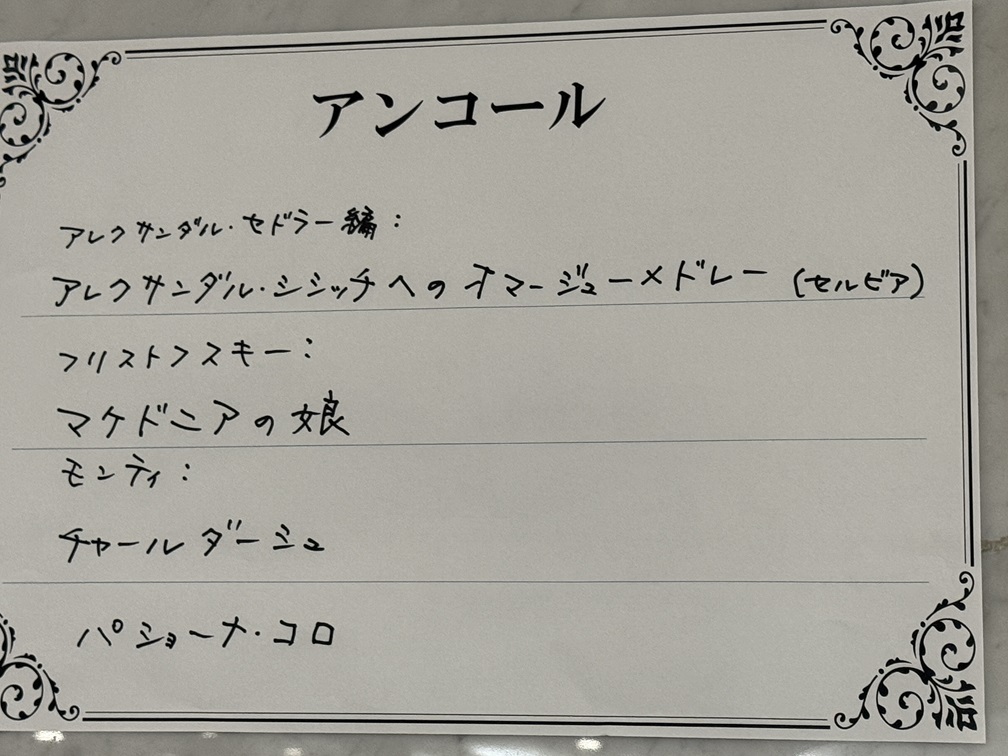 アンコール
アレクサンダル・セドラー編：
アレクサンダル・シシッチへのオマージューメドレー（セルビア）
フリストフスキー：
マケドニアの娘
モンティ：
チャールダーシュ
パショーナ・コロ